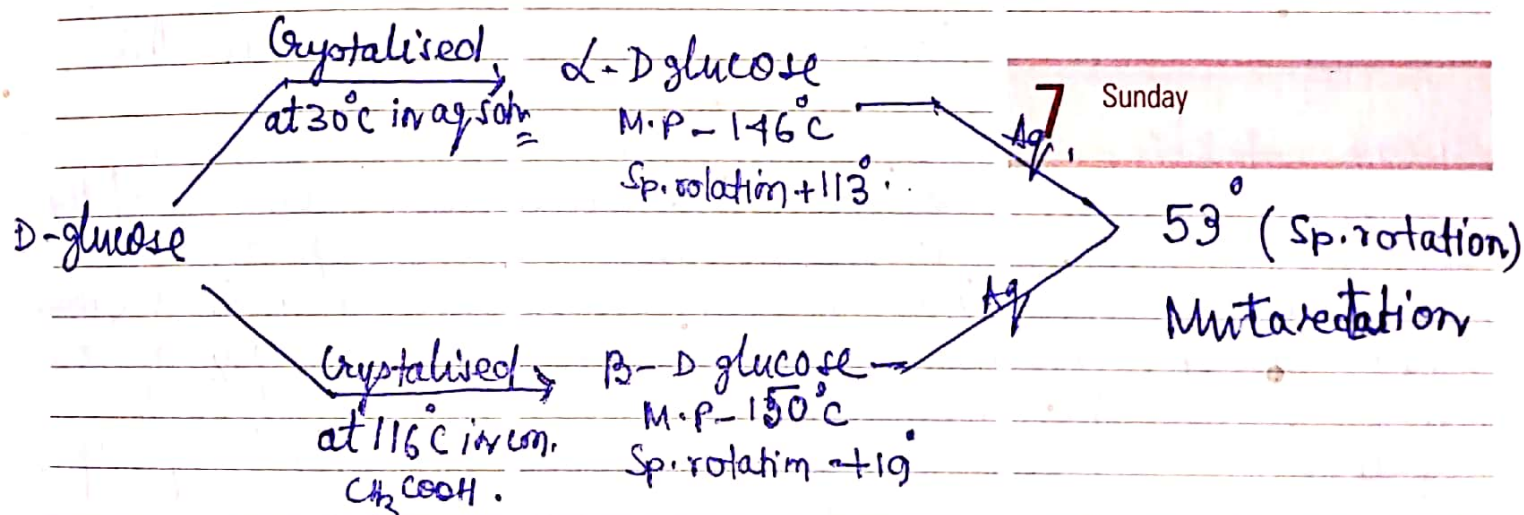 Crystalised
at 30°C in aq soln
α-D glucose
M.P - 146°C
Sp. rotation +113°.
7 Sunday
Aq.
D-glucose
53° (Sp. rotation)
Mutaredtation
Aq
Crystalised
at 116°C in con.
CH₂ COOH.
β-D-glucose
M.P - 150°C
Sp. rotation +19°